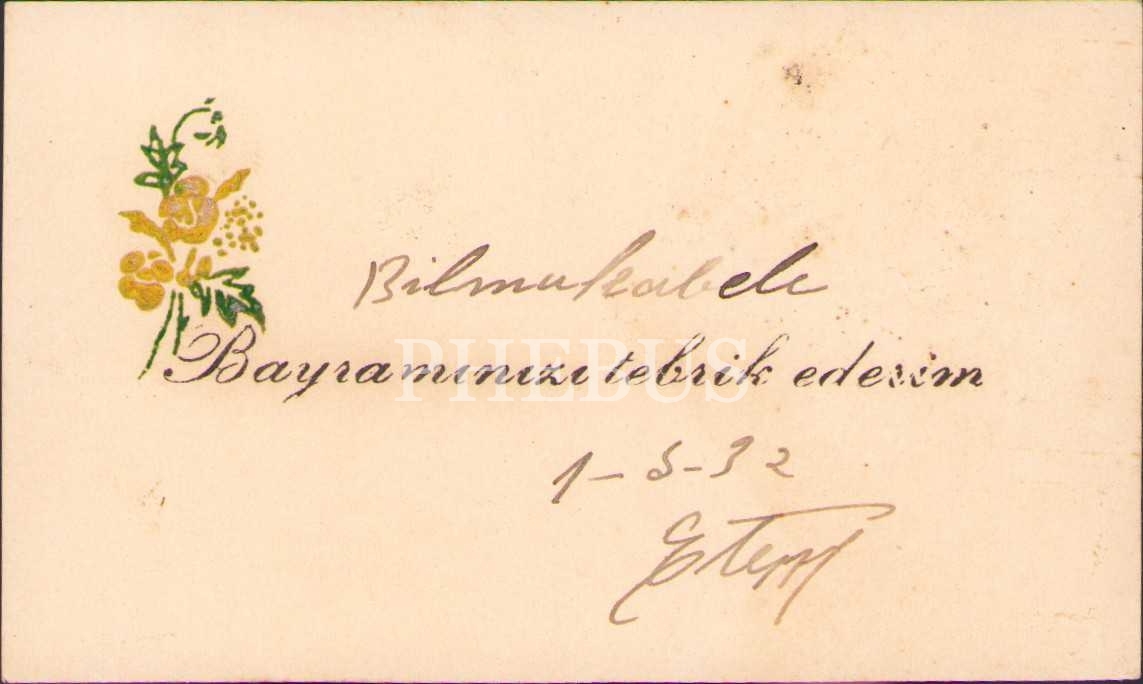 Bilmukabele
Bayramınızı tebrik ederim
PHEBUS
1-5-32